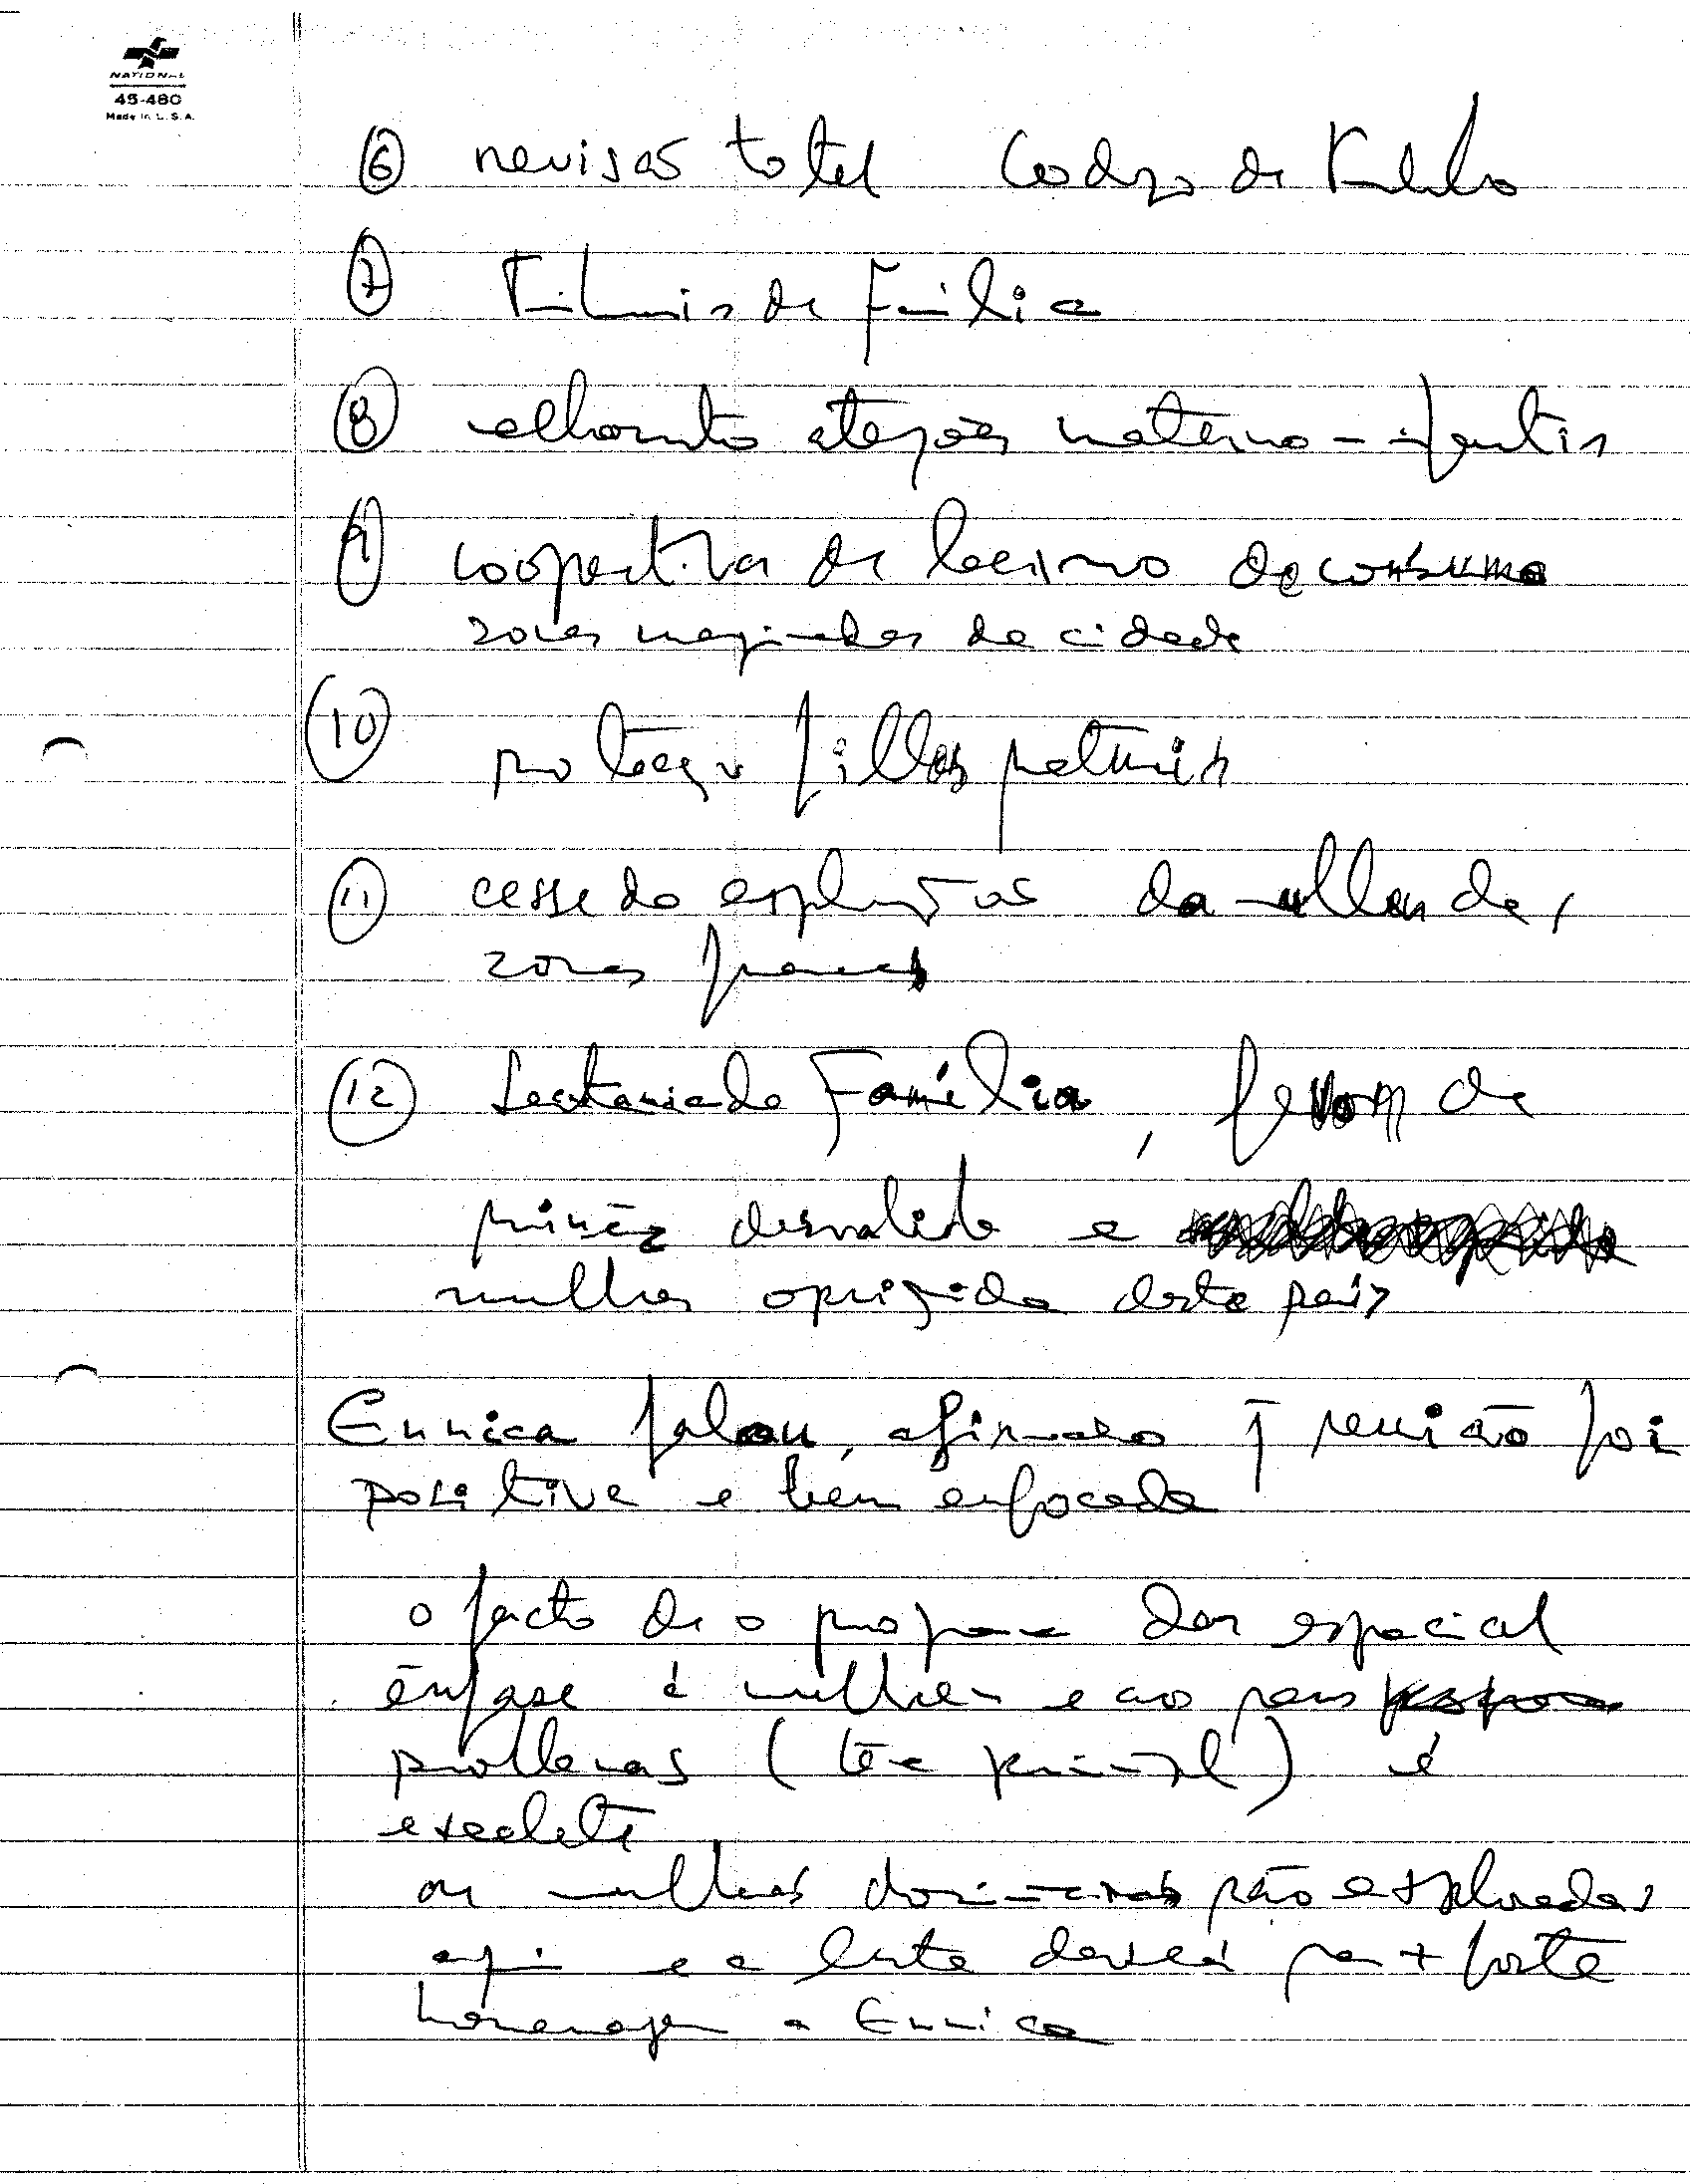 NATIONAL
45-480
Made in U.S.A.
⑥ revisão total Codigo de
⑦ de Família
⑧ materno-infantis
⑨ cooperativa de de consumo
zonas da cidade
⑩ proteção filhos naturais
⑪ cesse da exploração da mulher de
zonas francas
⑫ Secretaria da Família, favor de
desvalida e
mulher oprimida deste país
Ennica falou, afirmando q reunião foi
positiva e bem enfocada
o facto de o programa dar especial
ênfase à mulher e aos seus
problemas (tema principal) é
excelente
as mulheres dominicanas são exploradas
aqui e a luta deverá ser + forte
homenagem a Ennica